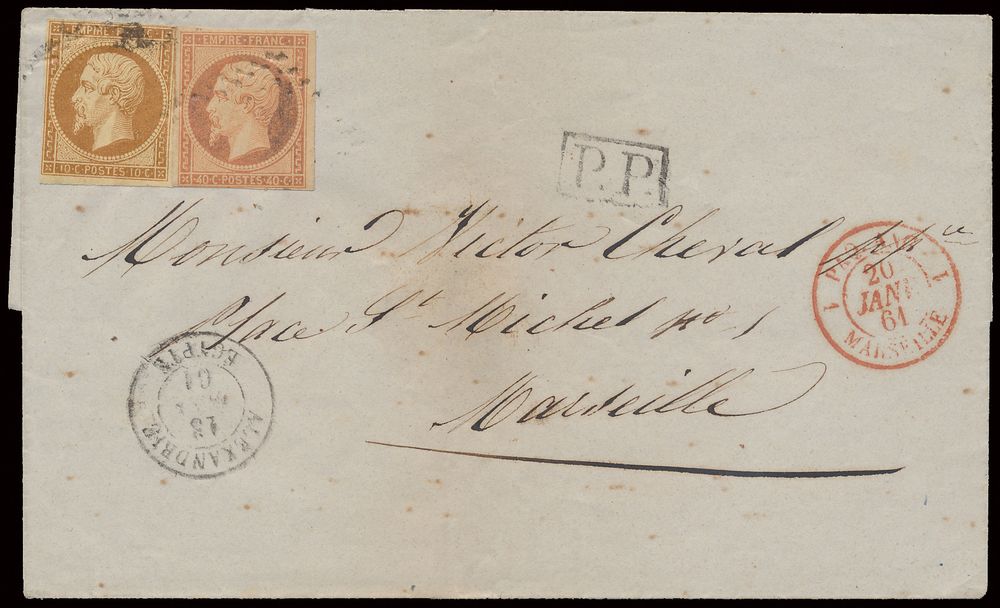 EMPIRE · FRANC ·
10 · C · POSTES · 10 · C ·
EMPIRE · FRANC ·
40 · C · POSTES · 40 · C ·
P.P.
Monsieur Victor Cheval
Place St Michel no 1
Marseille
20
JANV
61
1 MARSEILLE 1
ALEXANDRIE
13
61
EGYPTE